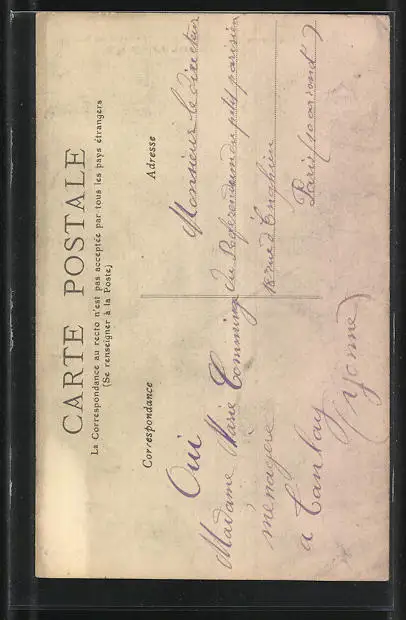 CARTE POSTALE
La Correspondance au recto n'est pas acceptée par tous les pays étrangers
(Se renseigner à la Poste)
Correspondance
Oui
Madame Marie Comming
ménagère
a Tanlay
(Yonne)
Adresse
Monsieur le directeur
du Referendum du petit parisien
18 rue d'Enghien
Paris (10 arrond^t)